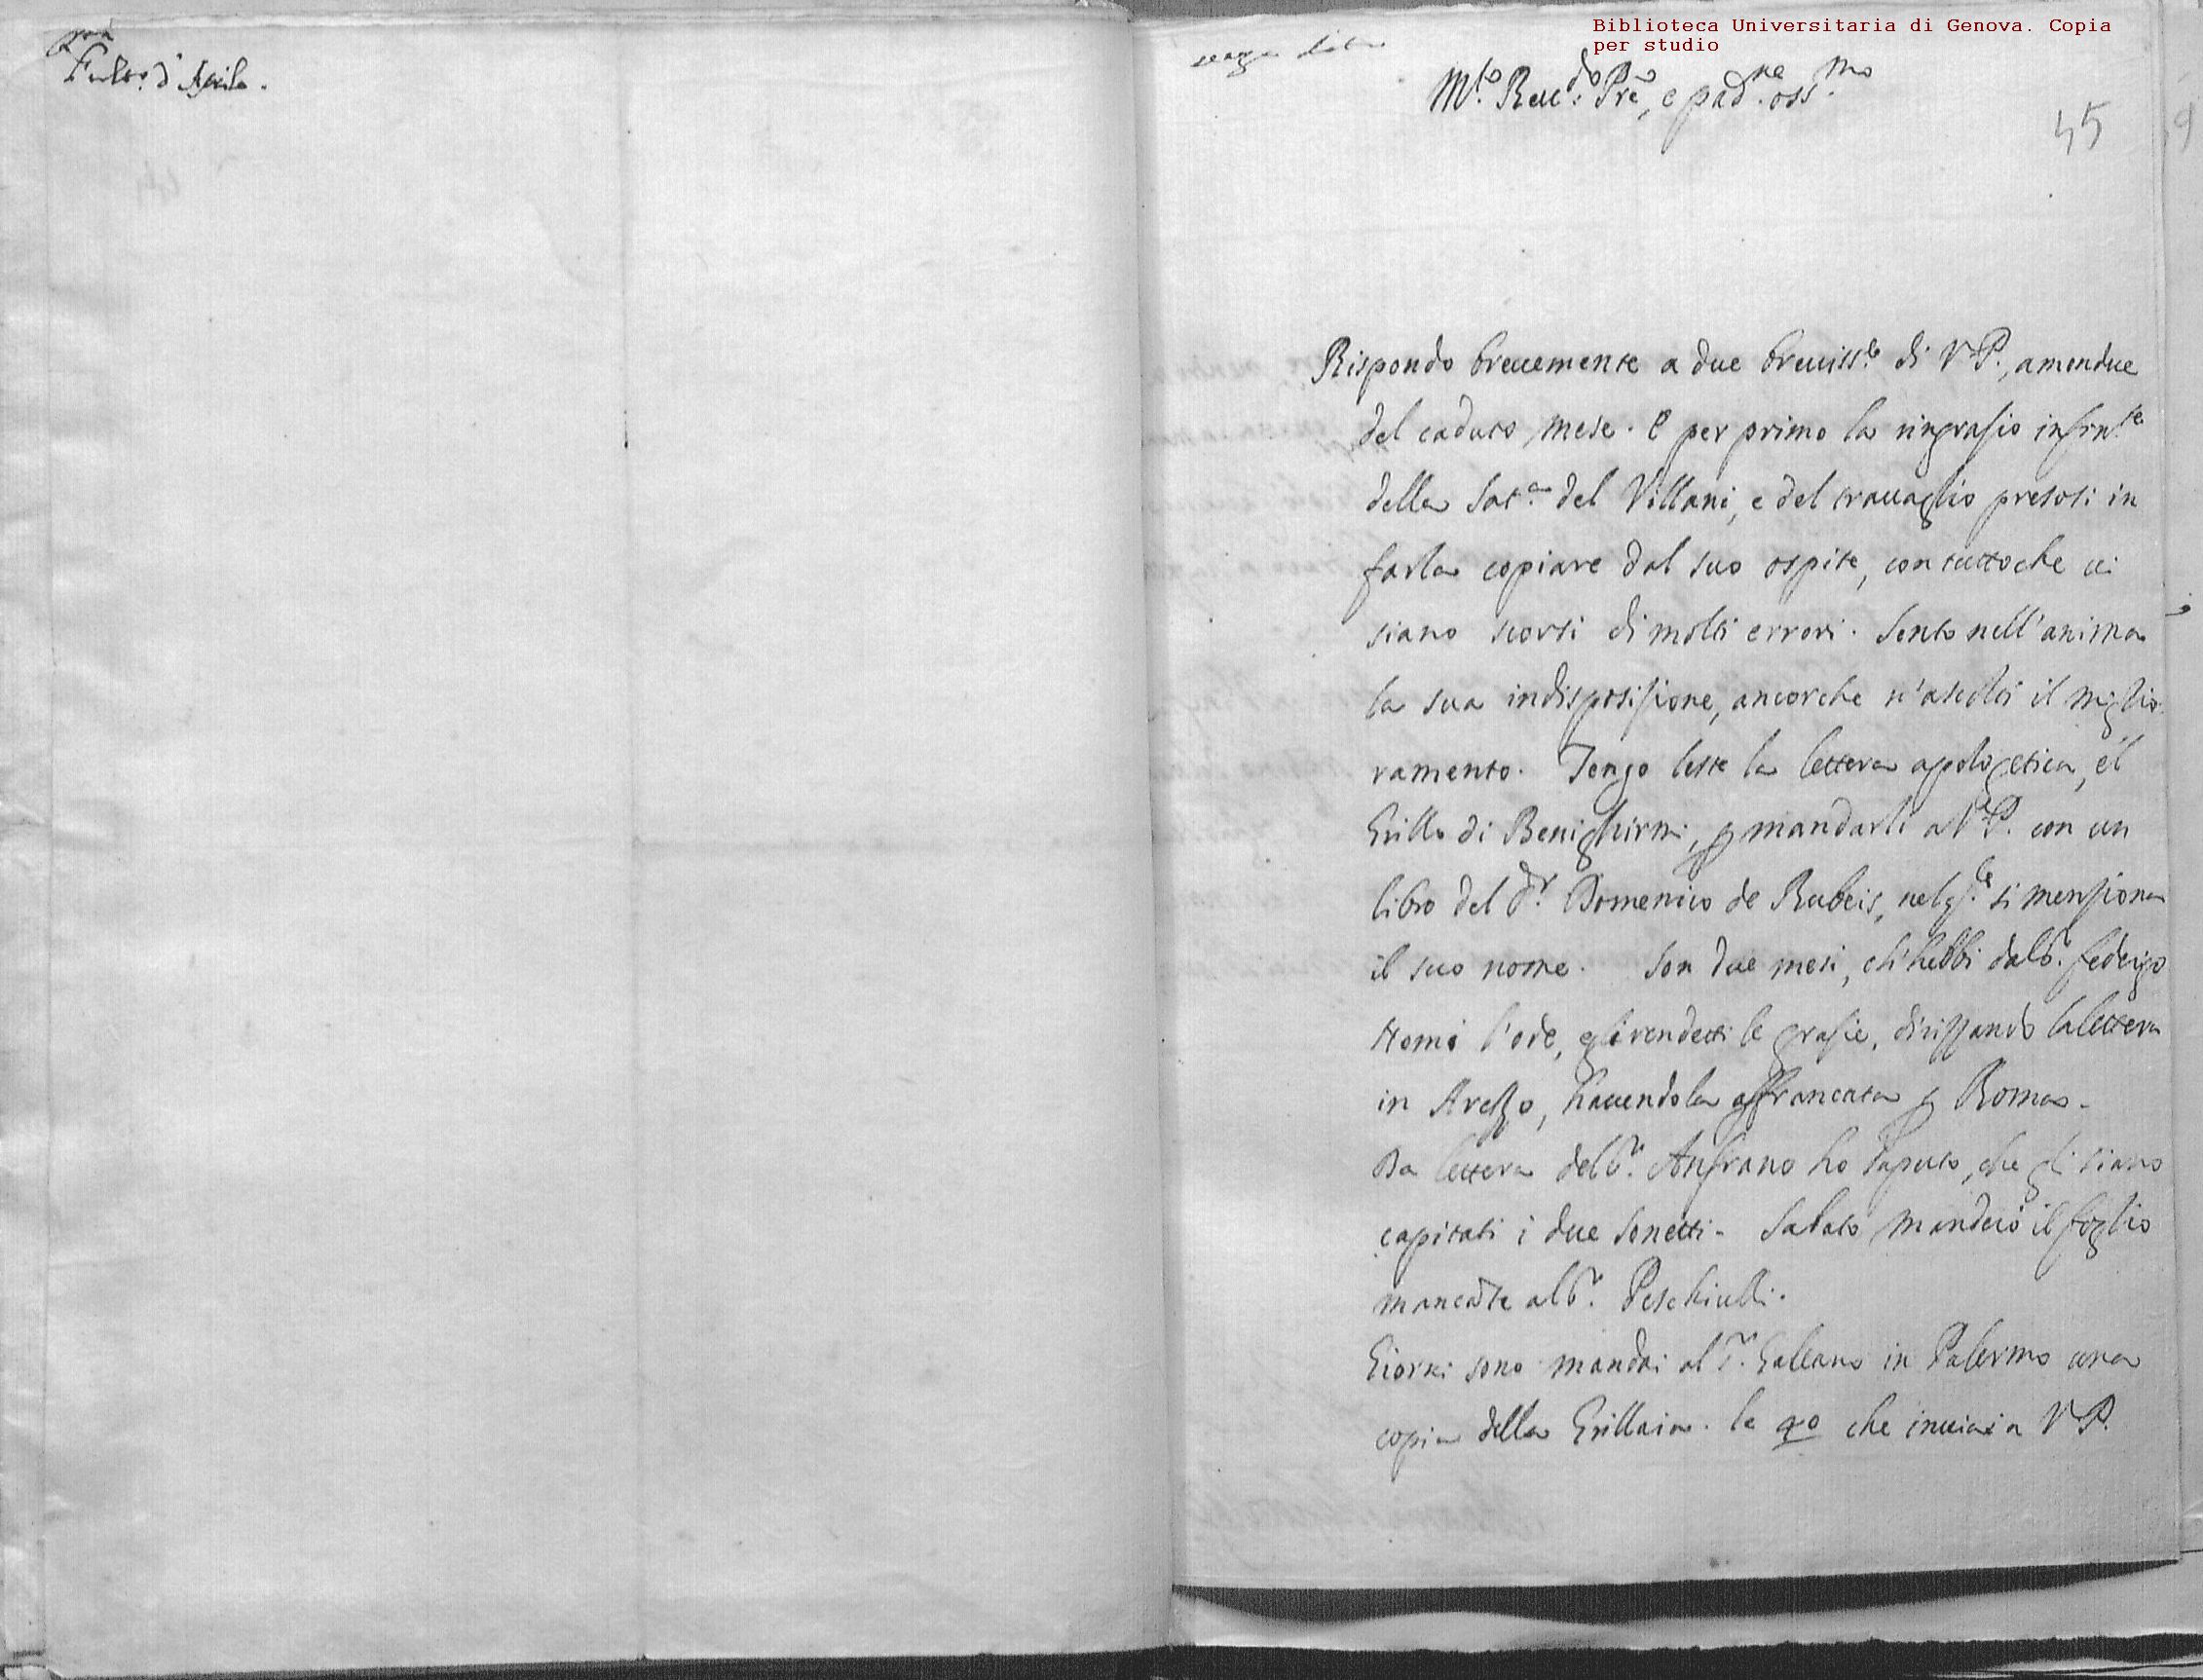 Fulv.º d'Apile.
Biblioteca Universitaria di Genova. Copia
per studio
senza data
M.to Reu.do P.re, e pad.ne oss.mo
45
Rispondo breuemente a due breuiss.e di V.P., amendue
del caduto mese. E per primo la ringrazio infin.te
della Sat.a del Villani, e del trauaglio presosi in
farla copiare dal suo ospite, con tuttoche ui
siano scorsi di molti errori. Sento nell'anima
la sua indisposizione, ancorche n'ascolti il miglio
ramento. Tengo leste la lettera apologetica, e'l
Grillo di Benighirni, p mandarli a V.P. con un
libro del d.r Domenico de Rubeis, nel q.le si menziona
il suo nome. Son due mesi, ch'hebbi dal S.r federigo
Nomi l'ode, e gli rendetti le grazie, dirizzando la lettera
in Arezzo, hauendola affrancata p Roma.
Da lettera del S.r Ansrano ho saputo, che gli siano
capitati i due sonetti. Sabato manderò il foglio
mancãte al S.r Peschiulli.
Giorni sono mandai al S.r Galeano in Palermo una
copia della Grillaia. le 40 che inuiai a V.P.